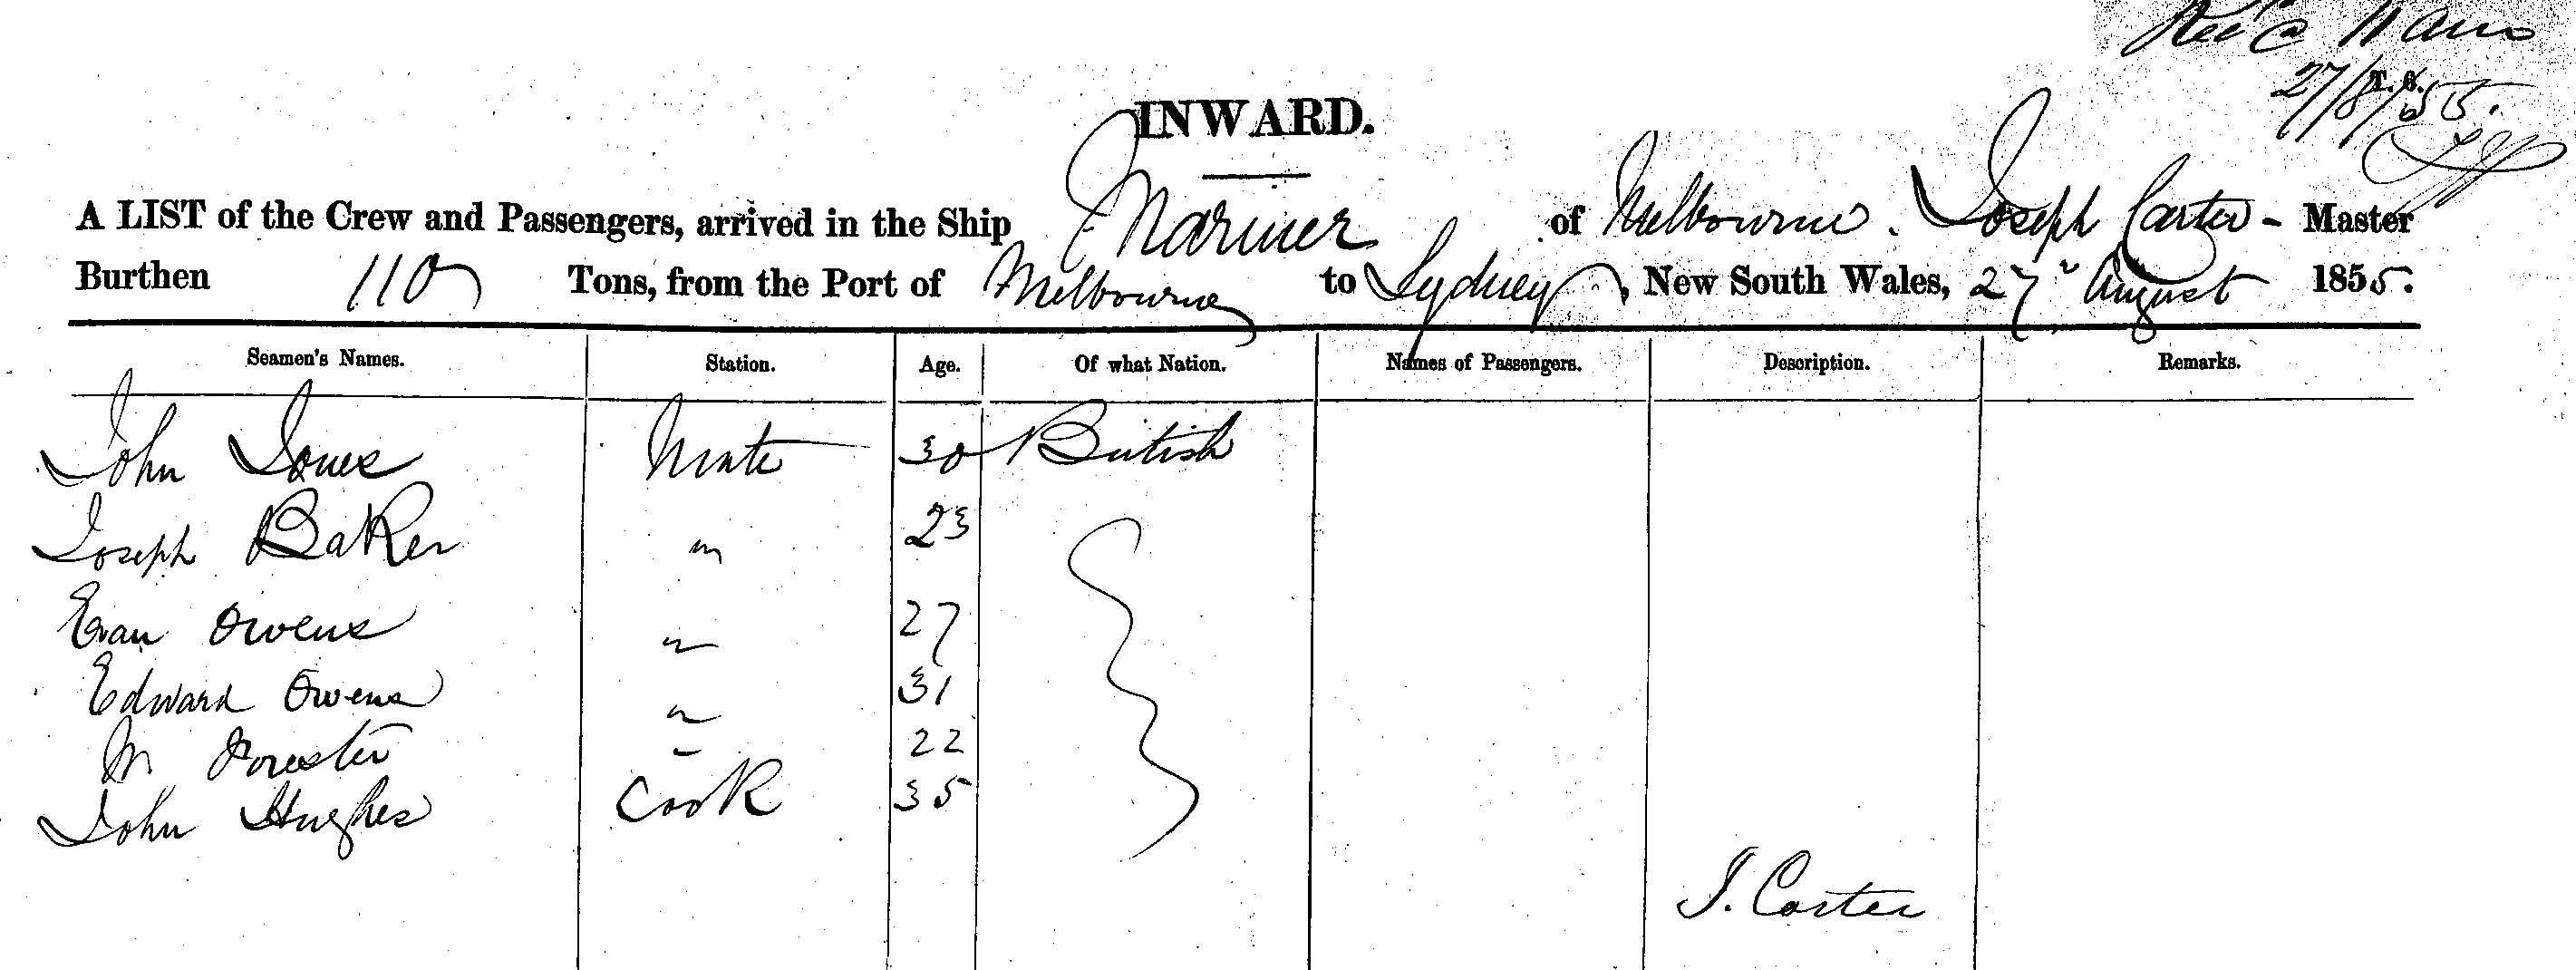 27/8/55.
T. S.
INWARD.
A LIST of the Crew and Passengers, arrived in the Ship Mariner of Melbourne. Joseph Carter - Master
Burthen 110 Tons, from the Port of Melbourne to Sydney, New South Wales, 27 August 1855.
Seamen's Names. Station. Age. Of what Nation. Names of Passengers. Description. Remarks.
John Jones Mate 30 British
Joseph Baker " 23
Evan Owens " 27
Edward Owens " 31
M Forester " 22
John Hughes Cook 35
J. Carter